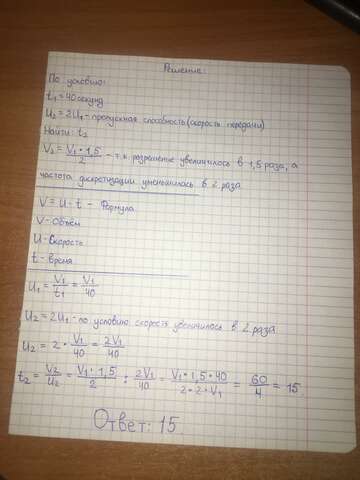 Решение:
По условию:
t₁ = 40 секунд
U₂ = 2U₁ - пропускная способность (скорость передачи)
Найти: t₂
V₂ = V₁ • 1,5 / 2 - т.к. разрешение увеличилось в 1,5 раза, а
частота дискретизации уменьшилась в 2 раза
V = U · t - Формула
V - Объём
U - Скорость
t - Время
U₁ = V₁ / t₁ = V₁ / 40
U₂ = 2U₁ - по условию скорость увеличилось в 2 раза
U₂ = 2 • V₁ / 40 = 2V₁ / 40
t₂ = V₂ / U₂ = V₁ • 1,5 / 2 : 2V₁ / 40 = V₁ • 1,5 • 40 / 2 • 2 • V₁ = 60 / 4 = 15
Ответ: 15